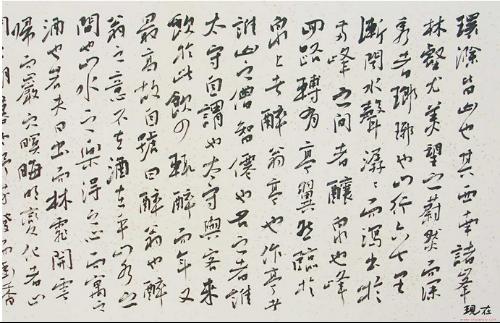 環滁皆山也其西南諸峯
林壑尤美望之蔚然而深
秀者瑯琊也山行六七里
漸聞水聲潺〻而瀉出於
兩峰之間者釀泉也峰
回路轉有亭翼然臨於
泉上者醉翁亭也作亭者
誰山之僧智僊也名之者誰
太守自謂也太守與客來
飲於此飲少輒醉而年又
最高故自號曰醉翁也醉
翁之意不在酒在乎山水之
間也山水之樂得之心而寓之
酒也若夫日出而林霏開雲
歸而巖穴暝晦明變化者山
現在